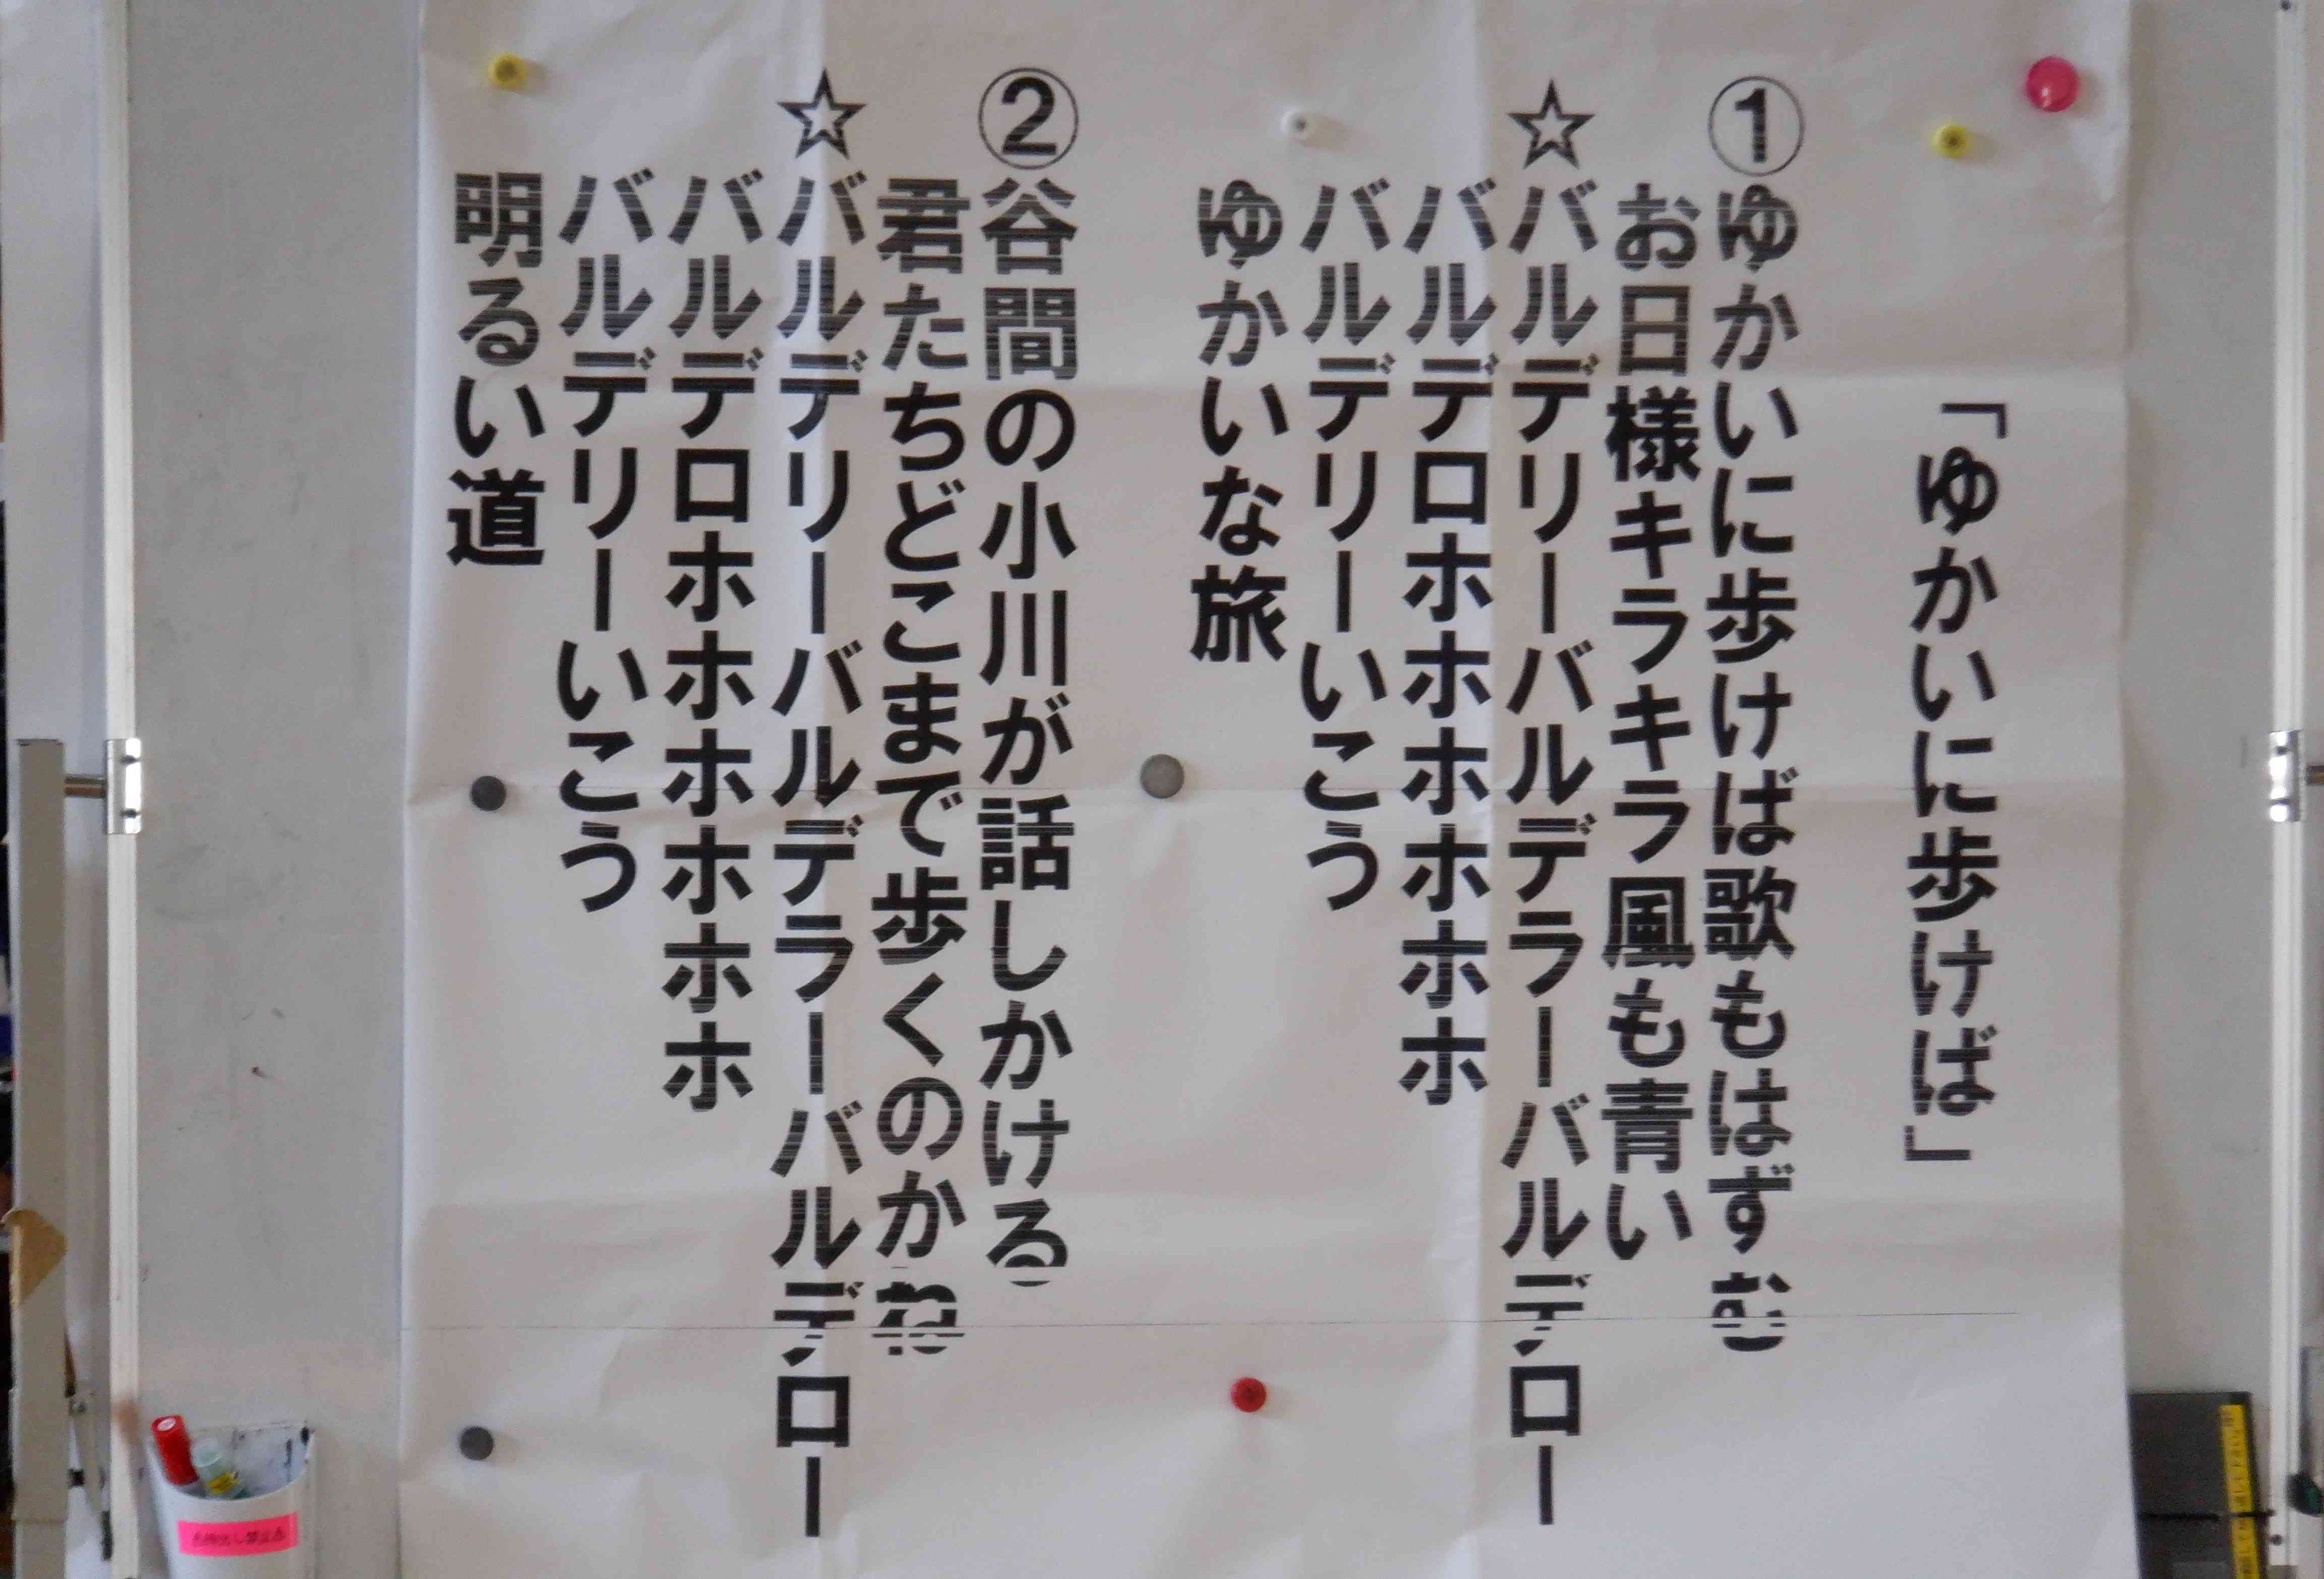 「ゆかいに歩けば」
①ゆかいに歩けば歌もはずむ
お日様キラキラ風も青い
☆バルデリーバルデラーバルデロー
バルデロホホホホホホ
バルデリーいこう
ゆかいな旅
②谷間の小川が話しかける
君たちどこまで歩くのかね
☆バルデリーバルデラーバルデロー
バルデロホホホホホホ
バルデリーいこう
明るい道